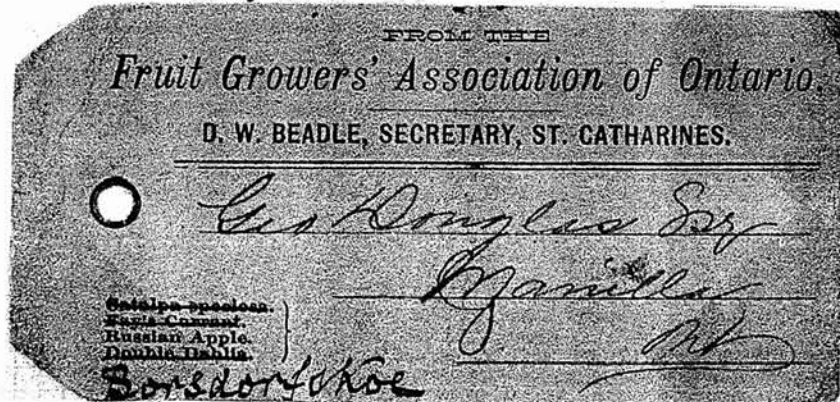 FROM THE
Fruit Growers' Association of Ontario.
D. W. BEADLE, SECRETARY, ST. CATHARINES.
Geo Douglas Esq
Manilla
Ont
Catalpa speciosa.
Fay's Currant.
Russian Apple.
Double Dahlia.
Borsdorfskoe